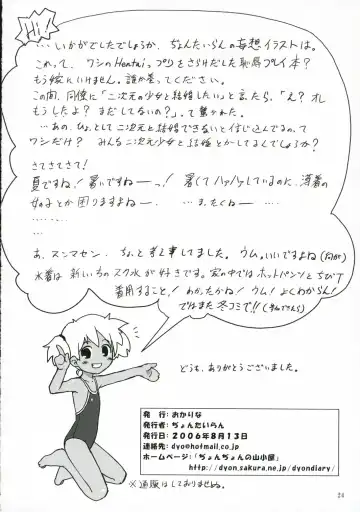 Hi!
…いかがでしたでしょうか、ぢょんたいらんの妄想イラストは。
これって、ワシのHentaiっプリをさらけだした恥辱プレイ本?
もう嫁にいけません。誰か貰ってください。
この間、同僚に「二次元の少女と結婚したい」と言ったら、「え?オレ
もうしたよ?まだしてないの?」って驚かれた。
…あの、ひょっとして二次元と結婚できないと信じ込んでるのって
ワシだけ? みんな二次元少女と結婚とかしてるんでしょうか?
さてさてさて!
夏ですね!暑いですねーっ! 暑くてハァハァしているのに、薄着の
女の子とか困りますよねー …まったくねー
……
…
あ、スンマセン、ちょっとずれ事してました。ウム。いいですよね(何が)
水着は新しい方のスク水が好きです。家の中ではホットパンツとちびT
着用すること!わかったかね!ウム!よくわからん!
ではまた冬コミで!!
どうも、ありがとうございました。
発 行:おかりな
発行者:ぢょんたいらん
発行日:2006年8月13日
連絡先:dyo@hotmail.co.jp
ホームページ:「ぢょんぢょんの山小屋」
http://dyon.sakura.ne.jp/dyondiary/
※通販はしておりませぬ。
24